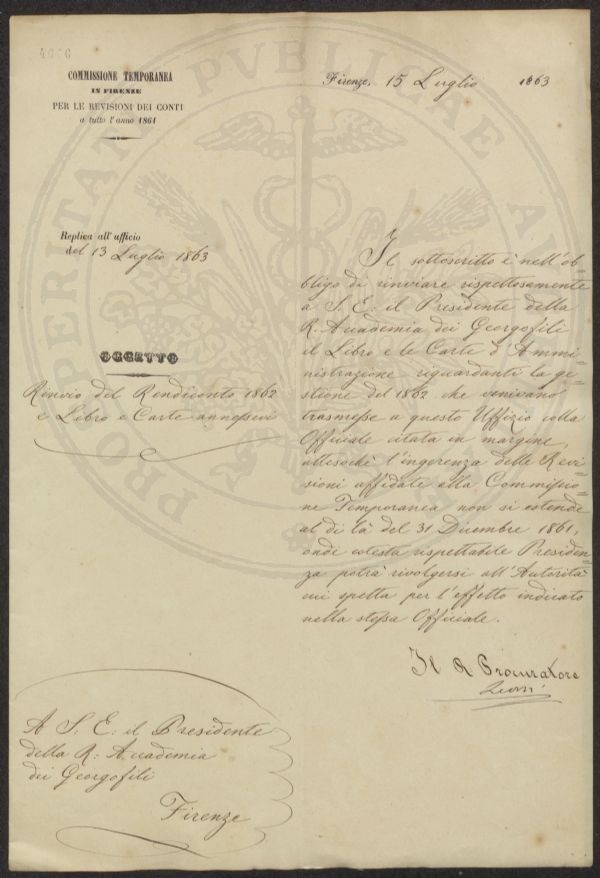 4006
COMMISSIONE TEMPORANEA
IN FIRENZE
PER LE REVISIONI DEI CONTI
a tutto l'anno 1861
Firenze, 15 Luglio 1863
Replica all'ufficio
del 13 Luglio 1863
OGGETTO
Rinvio del Rendiconto 1862
e Libro e Carte annessevi
Il sottoscritto è nell'ob=
bligo di rinviare rispettosamente
a S. E: il Presidente della
R. Accademia dei Georgofili
il Libro e le Carte d'Ammi=
nistrazione riguardanti la ge=
stione del 1862 che venivano
trasmesse a questo Uffizio colla
Officiale citata in margine,
attesochè l'ingerenza delle Revi=
sioni affidate alla Commissio=
ne Temporanea non si estende
al di là del 31 Dicembre 1861,
onde cotesta rispettabile Presiden=
za potrà rivolgersi all'Autorità
cui spetta per l'effetto indicato
nella stessa Officiale.
Il R Procuratore
A S. E: il Presidente
della R: Accademia
dei Georgofili
Firenze
PROSPERITATI PUBLICAE AU